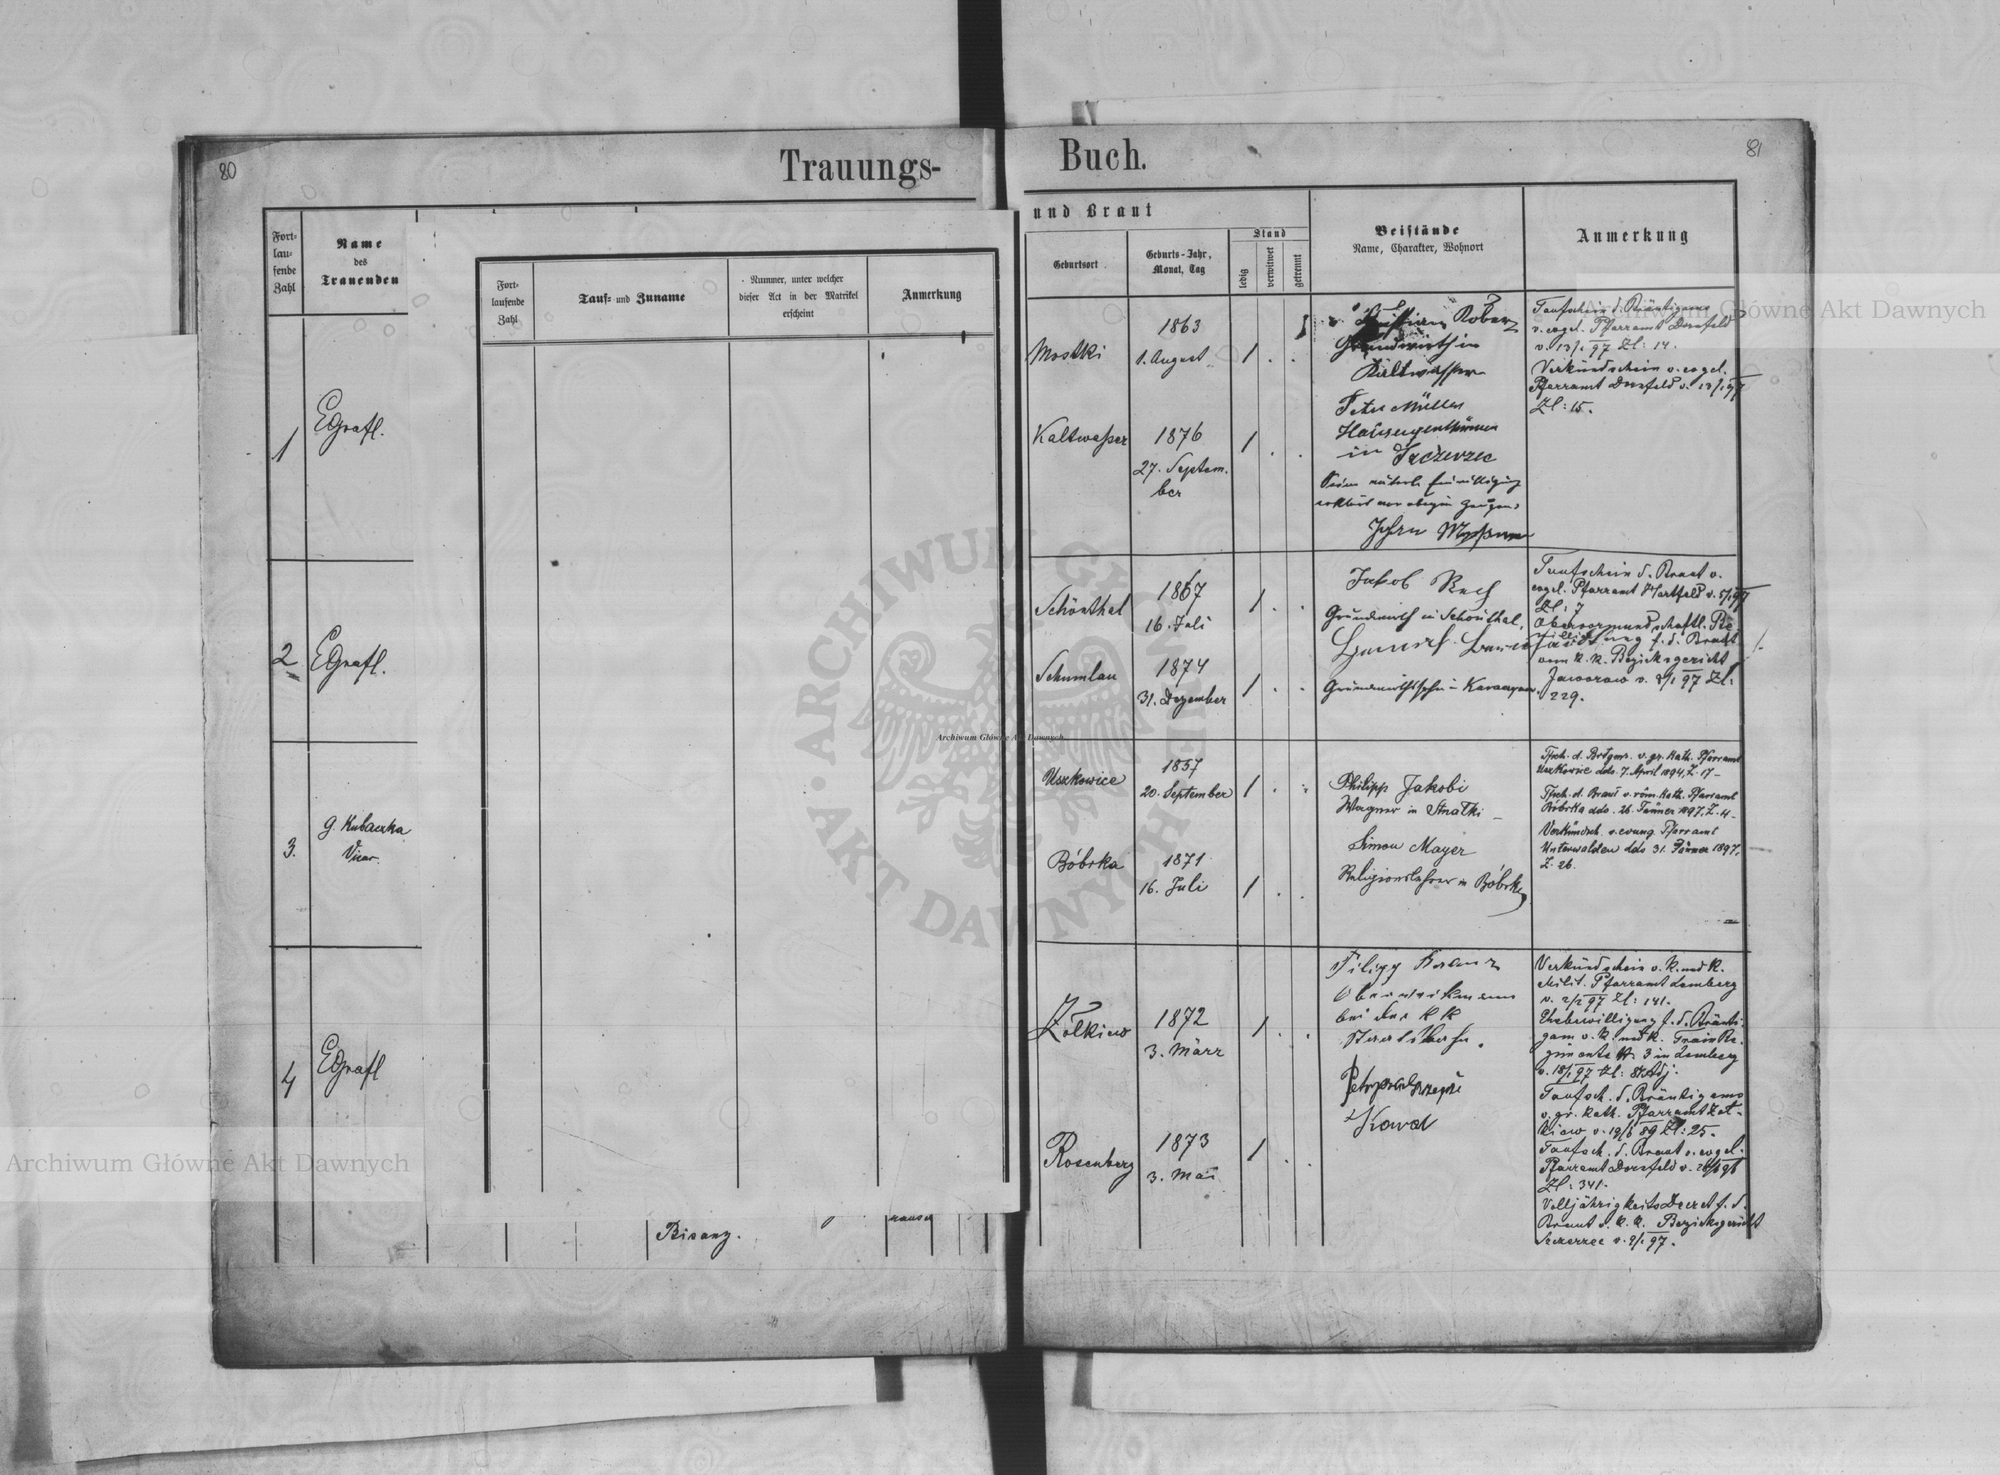 80
Trauungs-
Fort-
lau-
fende
Zahl
Name
des
Trauenden
Fort-
laufende
Zahl
Tauf- und Zuname
Nummer, unter welcher
dieser Act in der Matrikel
erscheint
Anmerkung
1
EGrafl.
2
EGrafl.
3.
G. Kubaczka
Vicar.
4
EGrafl
Bisanz.
81
Buch.
und Braut
Geburtsort
Geburts-Jahr,
Monat, Tag
Stand
ledig
verwitwet
getrennt
Beistände
Name, Charakter, Wohnort
Anmerkung
Mostki
1863
1. August
1
Grundwirth in
Kaltwasser
Kaltwaßer
1876
27. Septem-
ber
1
Peter Müller
in Szczerzec
Taufschein d. Bräutigams
v. evgel. Pfarramt Dornfeld
v. 13/1 97 Zl: 14.
Verkündschein v. evgel.
Pfarramt Dornfeld v. 13/1 97
Zl: 15.
Schönthal
1867
16. Juli
1
Jakob
Grundwirth in Schönthal.
Schumlau
1874
31. Dezember
1
Taufschein d. Braut v.
evgel. Pfarramt Hartfeld v. 5/1 97
Zl: 7
Obervormundschaftl. Be-
f. d. Braut
vom k. k. Bezirksgericht
Jaworow v. 97 Zl:
229.
Uszkowice
1857
20. September
1
Philipp Jakobi
Wagner in
Bóbrka
1871
16. Juli
1
Simon Mayer
Religionslehrer in Bóbrka
Tfsch. d. Brdgms. v. gr. kath. Pfarramt
Uszkowice ddo. 7. April 1894, Z. 17 –
Tfsch. d. Braut v. röm. kath. Pfarramt
Bóbrka ddo. 26. Jänner 1897, Z. 4 –
Verkündsch. v. evang. Pfarramt
Unterwalden ddo 31. Jänner 1897,
Z. 26.
Żółkiew
1872
3. März
1
Filipp
bei der k k
Rosenberg
1873
3. Mai
1
Kowal
Verkündschein v. k. und k.
Milit. Pfarramt Lemberg
v. 2/2 97 Zl: 141.
Ehebewilligung f. d. Bräuti-
gam v. k. und k. Train Re-
giments Nr. 3 in Lemberg
Taufsch. d. Bräutigams
v. gr. kath. Pfarramt Żół-
kiew v. 19/6 89 Zl: 25.
Taufsch. d. Braut v. evgel.
Pfarramt Dornfeld
Zl: 341.
Volljährigkeits Decret f. d.
Braut d. k. k. Bezirksgericht
Szczerzec v. 9/1 97.
Archiwum Główne Akt Dawnych
Archiwum Główne Akt Dawnych
Archiwum Główne Akt Dawnych
ARCHIWUM GŁÓWNE AKT DAWNYCH